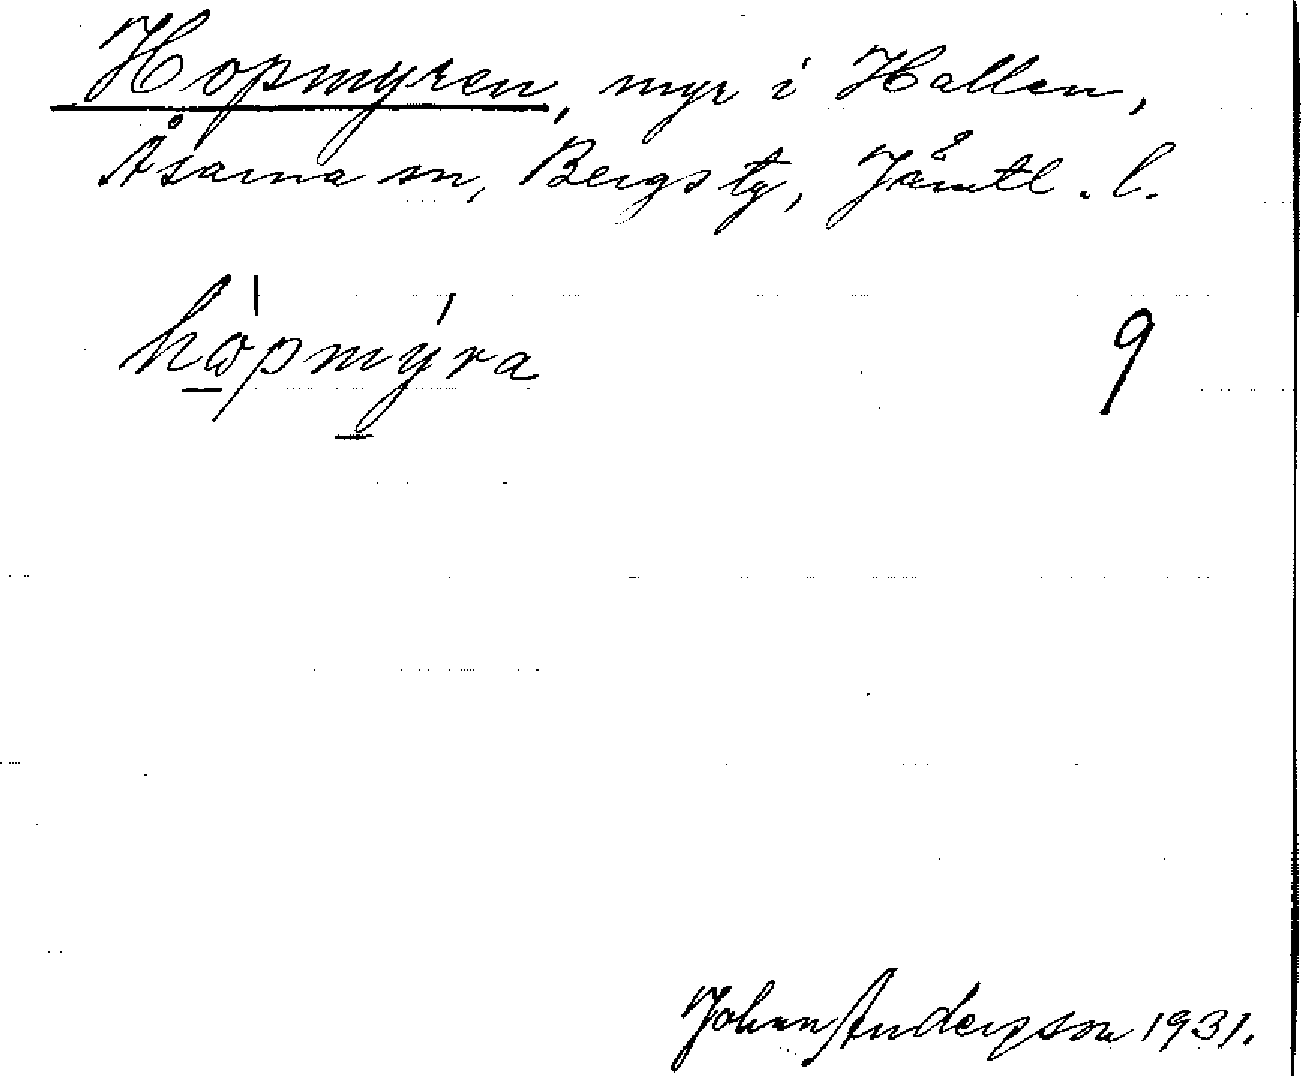 Hopmyren, myr i Hallen,
Åsarna sn, Bergs tg, Jämtl. l.
hòpmýra
9
Johan Anderson 1931.